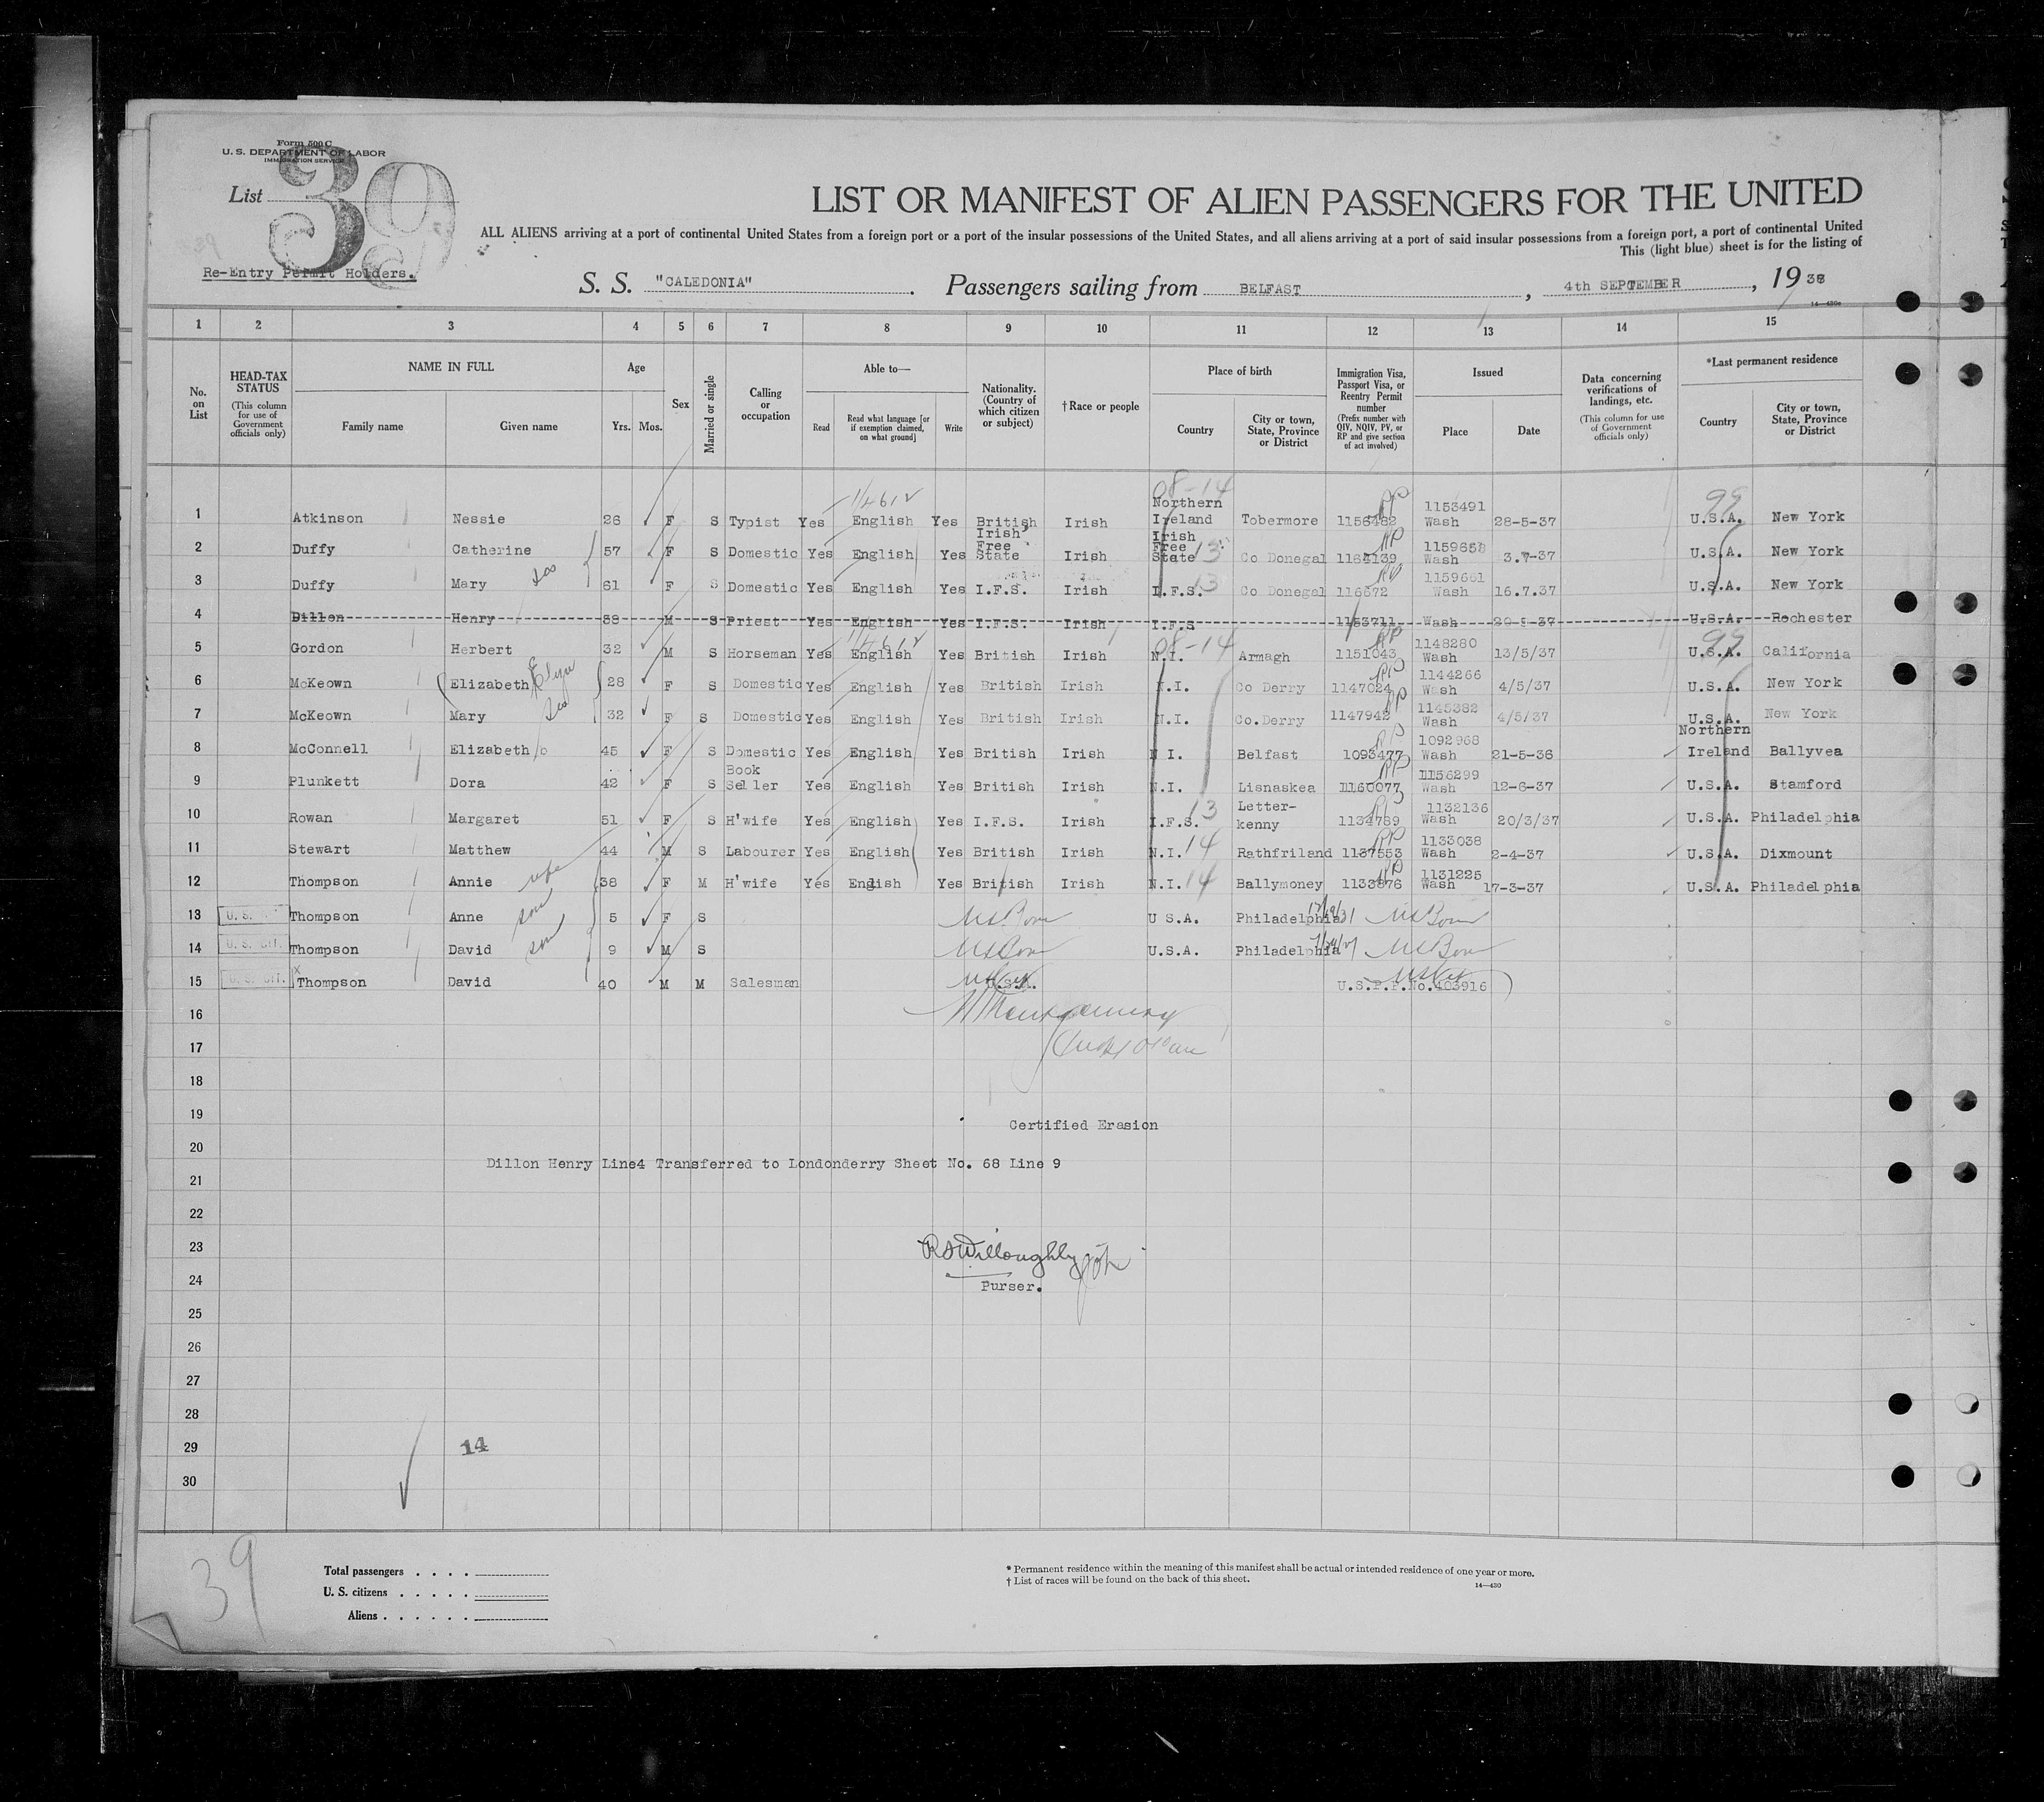 Form 500 C
U. S. DEPARTMENT OF LABOR
IMMIGRATION SERVICE
List
39
Re-Entry Permit Holders.
LIST OR MANIFEST OF ALIEN PASSENGERS FOR THE UNITED
ALL ALIENS arriving at a port of continental United States from a foreign port or a port of the insular possessions of the United States, and all aliens arriving at a port of said insular possessions from a foreign port, a port of continental United
This (light blue) sheet is for the listing of
S. S. "CALEDONIA". Passengers sailing from BELFAST, 4th SEPTEMBER, 19
14—430c
1 2 3 4 5 6 7 8 9 10 11 12 13 14 15
No. on List
HEAD-TAX STATUS (This column for use of Government officials only)
NAME IN FULL Family name Given name
Age Yrs. Mos.
Sex
Married or single
Calling or occupation
Able to— Read Read what language [or if exemption claimed, on what ground] Write
Nationality. (Country of which citizen or subject)
†Race or people
Place of birth Country City or town, State, Province or District
Immigration Visa, Passport Visa, or Reentry Permit number (Prefix number with QIV, NQIV, PV, or RP and give section of act involved)
Issued Place Date
Data concerning verifications of landings, etc. (This column for use of Government officials only)
*Last permanent residence Country City or town, State, Province or District
1 Atkinson Nessie 26 F S Typist Yes English Yes British Irish Northern Ireland Tobermore 1156482 RP 1153491 Wash 28-5-37 U.S.A. New York
2 Duffy Catherine 57 F S Domestic Yes English Yes Irish Free State Irish Irish Free State 13 Co Donegal 1164139 RP Wash U.S.A. New York
3 Duffy Mary 61 F S Domestic Yes English Yes I.F.S. Irish I.F.S. 13 Co Donegal 116672 RP 1159661 Wash 16.7.37 U.S.A. New York
4 Dillon Henry M S Priest Yes English Yes I.F.S. Irish I.F.S 1153711 Wash U.S.A. Rochester
5 Gordon Herbert 32 M S Horseman Yes English Yes British Irish 08-14 N.I. Armagh 1151043 RP 1148280 Wash 13/5/37 99 U.S.A. California
6 McKeown Elizabeth 28 F S Domestic Yes English Yes British Irish N.I. Co Derry 1147024 RP 1144266 Wash 4/5/37 U.S.A. New York
7 McKeown Mary 32 F S Domestic Yes English Yes British Irish N.I. Co.Derry 1147942 RP 1145382 Wash 4/5/37 U.S.A. New York
8 McConnell Elizabeth 45 F S Domestic Yes English Yes British Irish N I. Belfast 1093477 RP 1092968 Wash 21-5-36 Northern Ireland Ballyvea
9 Plunkett Dora 42 F S Book Seller Yes English Yes British Irish N.I. Lisnaskea 1160077 RP 1156299 Wash 12-6-37 U.S.A. Stamford
10 Rowan Margaret 51 F S H'wife Yes English Yes I.F.S. Irish I.F.S. 13 Letter-kenny 1134789 RP 1132136 Wash 20/3/37 U.S.A. Philadelphia
11 Stewart Matthew 44 M S Labourer Yes English Yes British Irish N.I. 14 Rathfriland 1137553 RP 1133038 Wash 2-4-37 U.S.A. Dixmount
12 Thompson Annie wife 38 F M H'wife Yes English Yes British Irish N.I. 14 Ballymoney 1133876 RP 1131225 Wash 17-3-37 U.S.A. Philadelphia
13 U. S. Thompson Anne 5 F S US Born U S.A. Philadelphia US Born
14 U. S. CIT. Thompson David son 9 M S US Born U.S.A. Philadelphia US Born
15 U. S. CIT. x Thompson David 40 M M Salesman U.S.A. U.S.P.P.No.403916
16
17
18
19
Certified Erasion
20
Dillon Henry Line4 Transferred to Londonderry Sheet No. 68 Line 9
21
22
23
R S Willoughby
24
Purser.
25
26
27
28
29 14
30
39
Total passengers
U. S. citizens
Aliens
* Permanent residence within the meaning of this manifest shall be actual or intended residence of one year or more.
† List of races will be found on the back of this sheet.
14—430